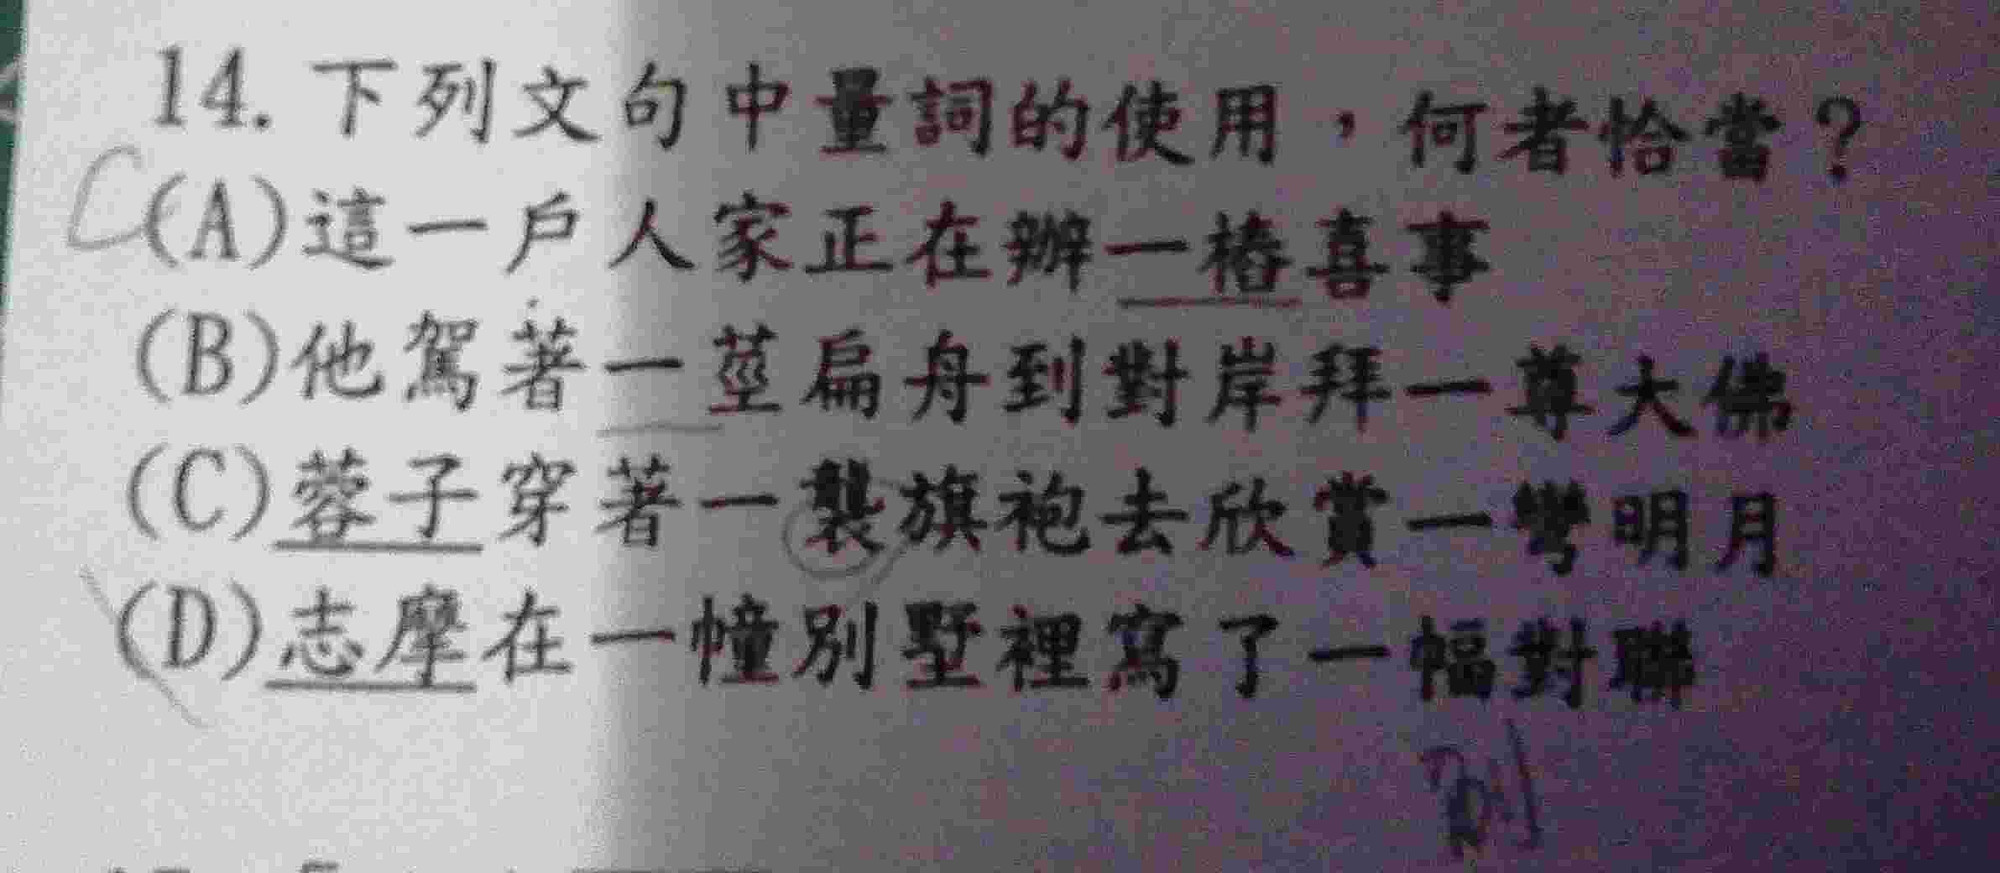 14. 下列文句中量詞的使用，何者恰當？
C
(A)這一戶人家正在辦一樁喜事
(B)他駕著一莖扁舟到對岸拜一尊大佛
(C)蓉子穿著一襲旗袍去欣賞一彎明月
(D)志摩在一幢別墅裡寫了一幅對聯
副